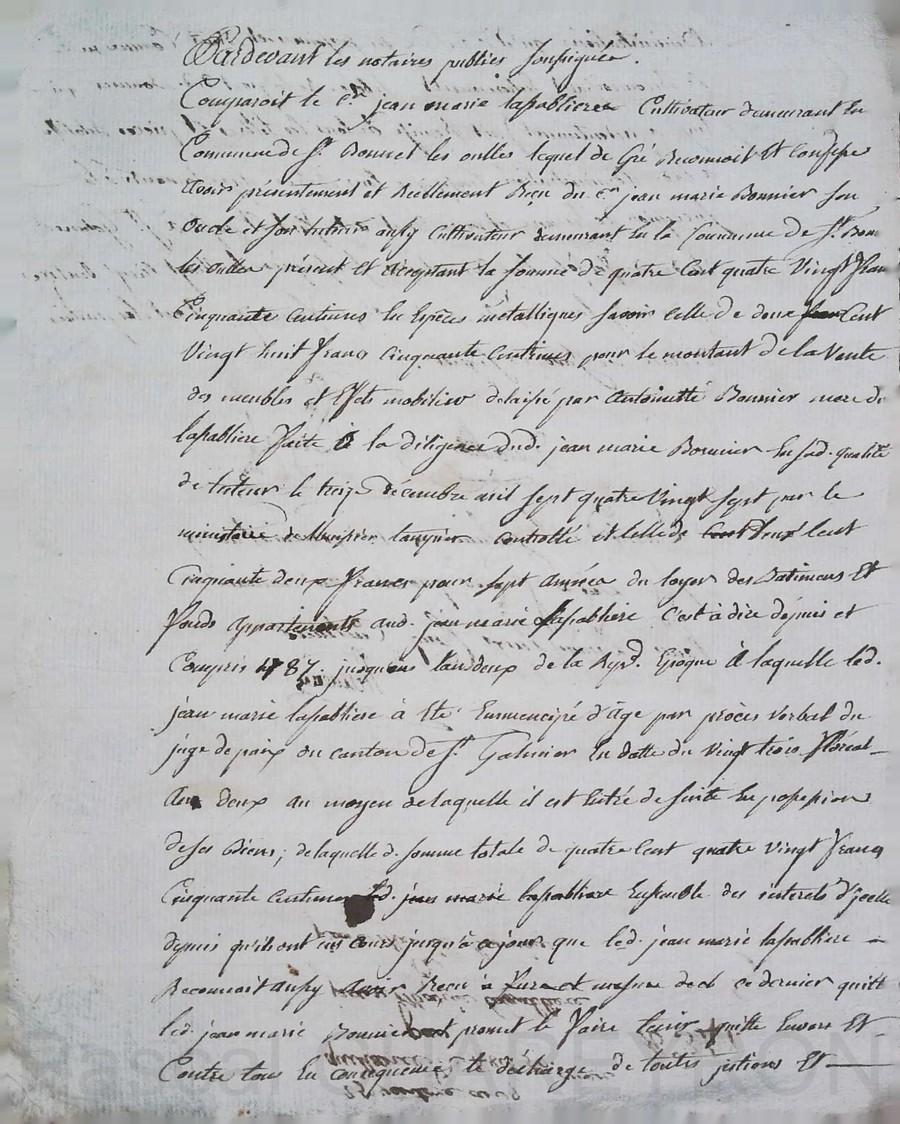 Pardevant les notaires publics soussignés.
Comparoit le Cen jean marie lapabliere Cultivateur demeurant En
Commune de St. Bonnet les oulles lequel de Gré Reconnoit Et Confesse
avoir présentement et Réellement Reçu du Cen jean marie Bonnier son
oncle et son tuteur aussy Cultivateur demeurant En la Commune de St. Bon
les oulles présent Et acceptant la somme de quatre Cent quatre Vingt fran
Cinquante Centimes En Espèces métalliques savoir celle de deux Cent
Vingt huit francs Cinquante Centimes pour le montant de la Vente
des meubles et Effets mobiliers delaissé par Antoinette Bonnier mere du
lapabliere faite à la diligence dud. jean marie Bonnier En sad. qualité
de tuteur le treize décembre mil sept quatre Vingt sept par le
ministaire de Controllé et Celle de deux Cent
Cinquante deux francs pour sept années du loyer des Batimens Et
fonds appartenants aud. jean marie lapabliere C'est à dire depuis et
Compris 1787. jusques l'an deux de la Rep. Epoque à laquelle led.
jean marie lapabliere à Eté Emmencipé d'âge par procès verbal du
juge de paix du canton de St. Galmier En datte du Vingt trois floréal
an deux au moyen de laquelle il est Entré de suite En possession
de ses Biens; de laquelle d. somme totale de quatre Cent quatre Vingt francs
Cinquante Centimes led. jean marie lapabliere Ensemble des interets d'jcelle
depuis qu'ils ont eus cours jusqu'à ce jour que led. jean marie lapabliere
Reconnoit aussy avoir Reçu à fur et mesure de ce dernier quitte
led. jean marie Bonnier promet le faire tenir quitte Envers Et
Contre tous En consequence le décharge de toutes gestions Et